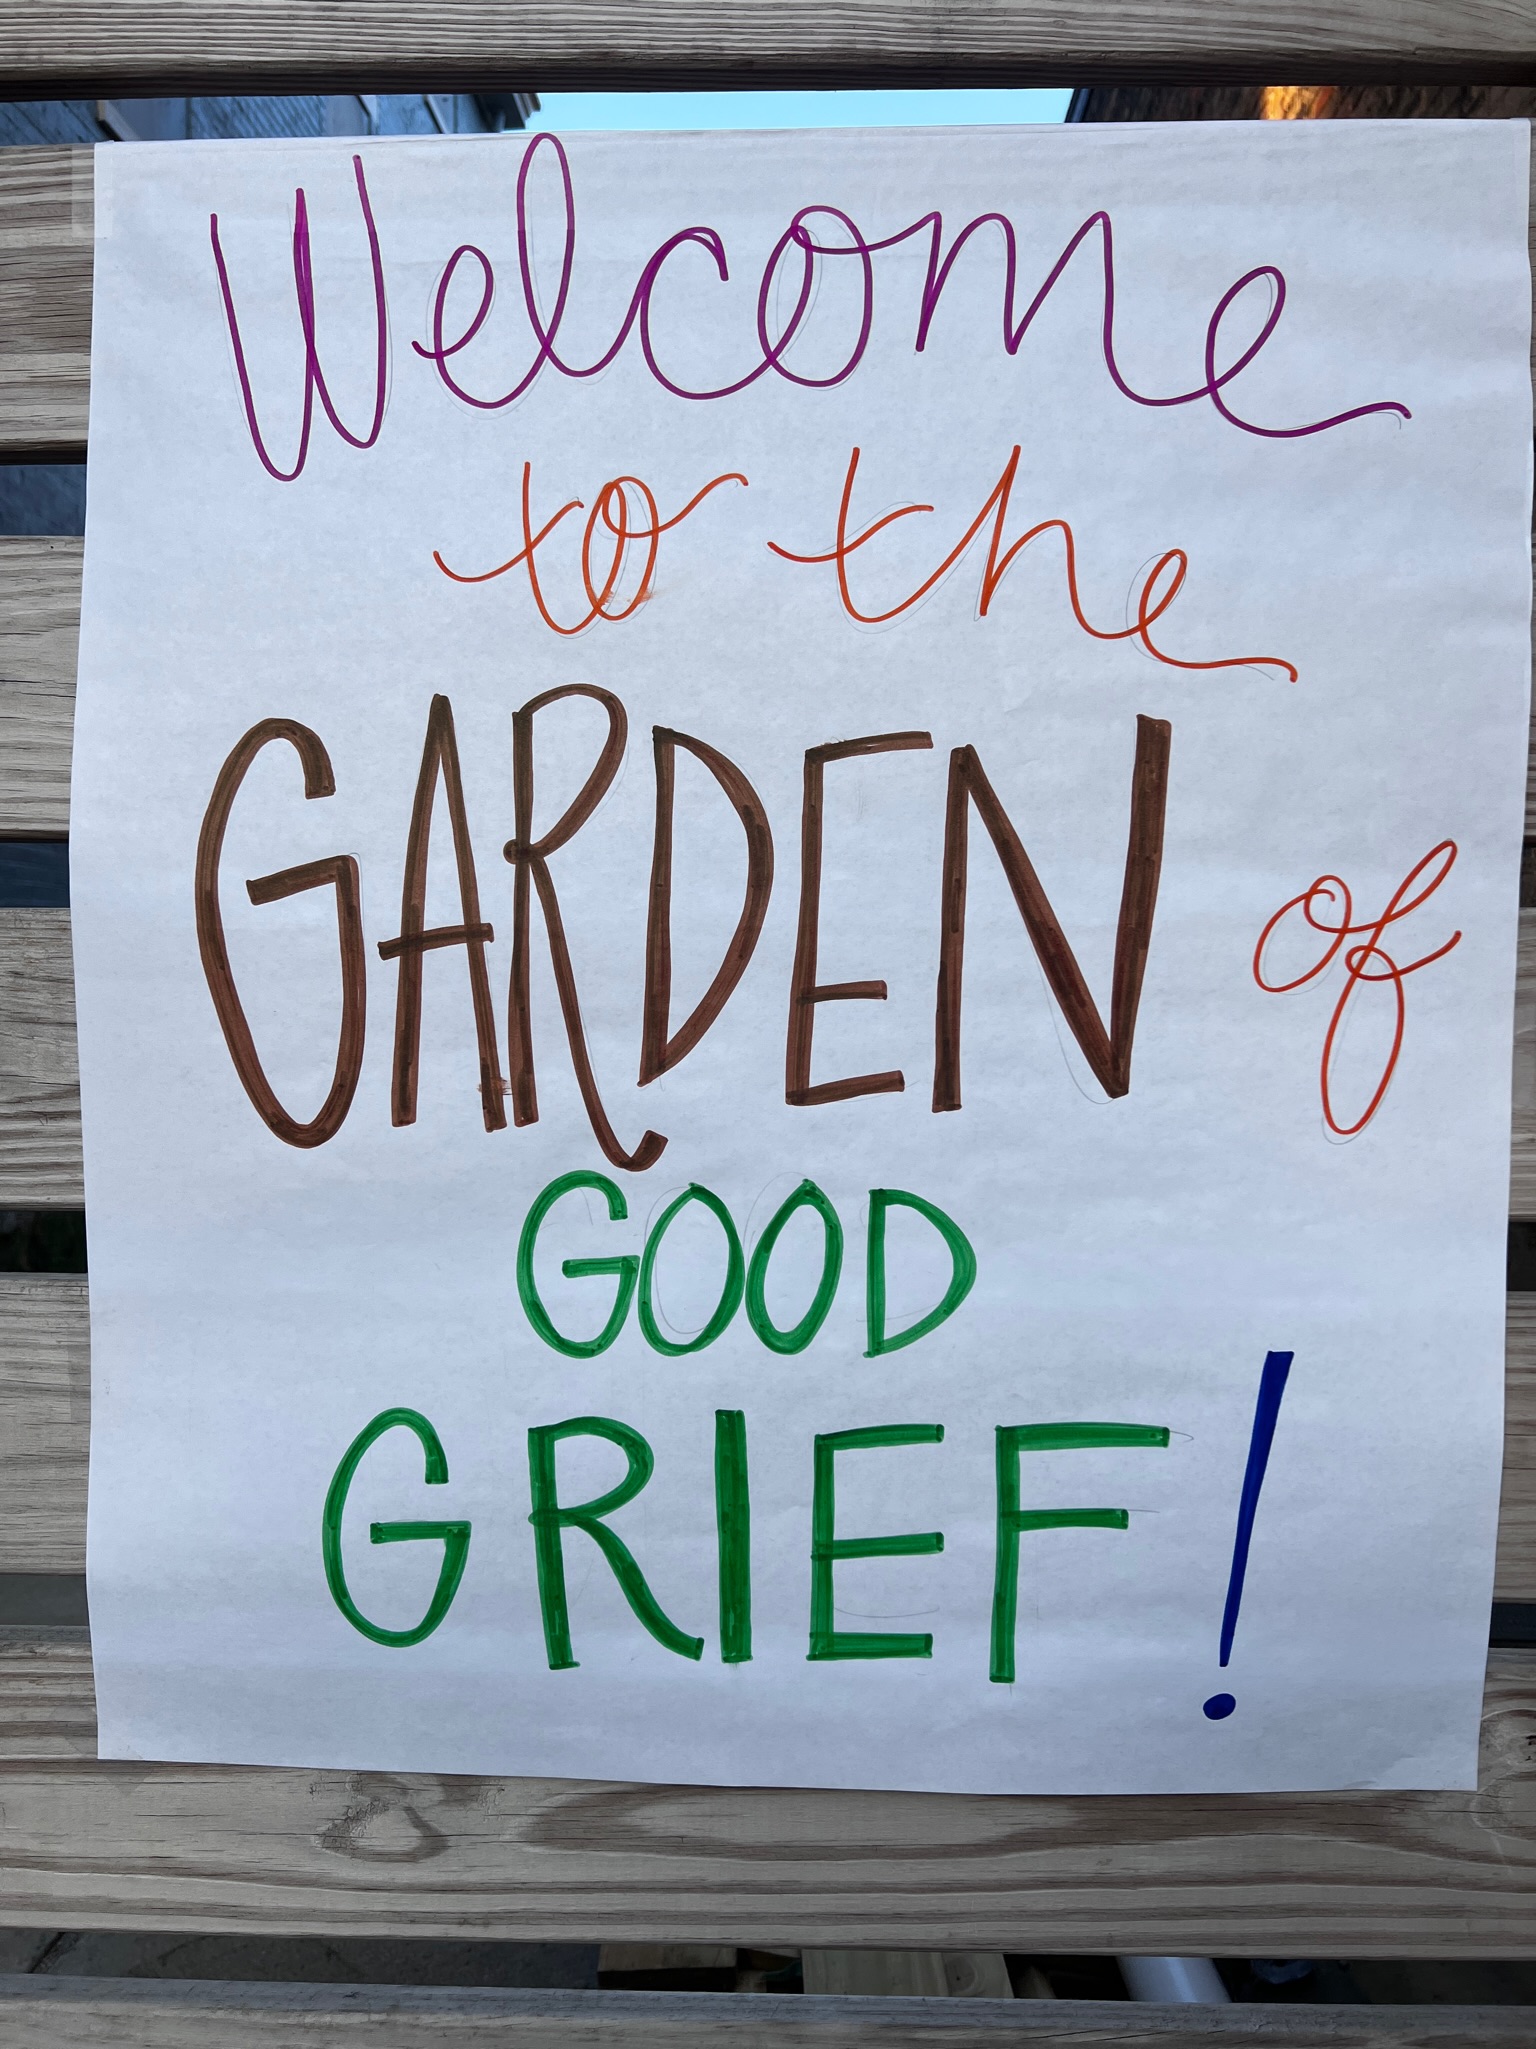 Welcome
to the
GARDEN of
GOOD
GRIEF!